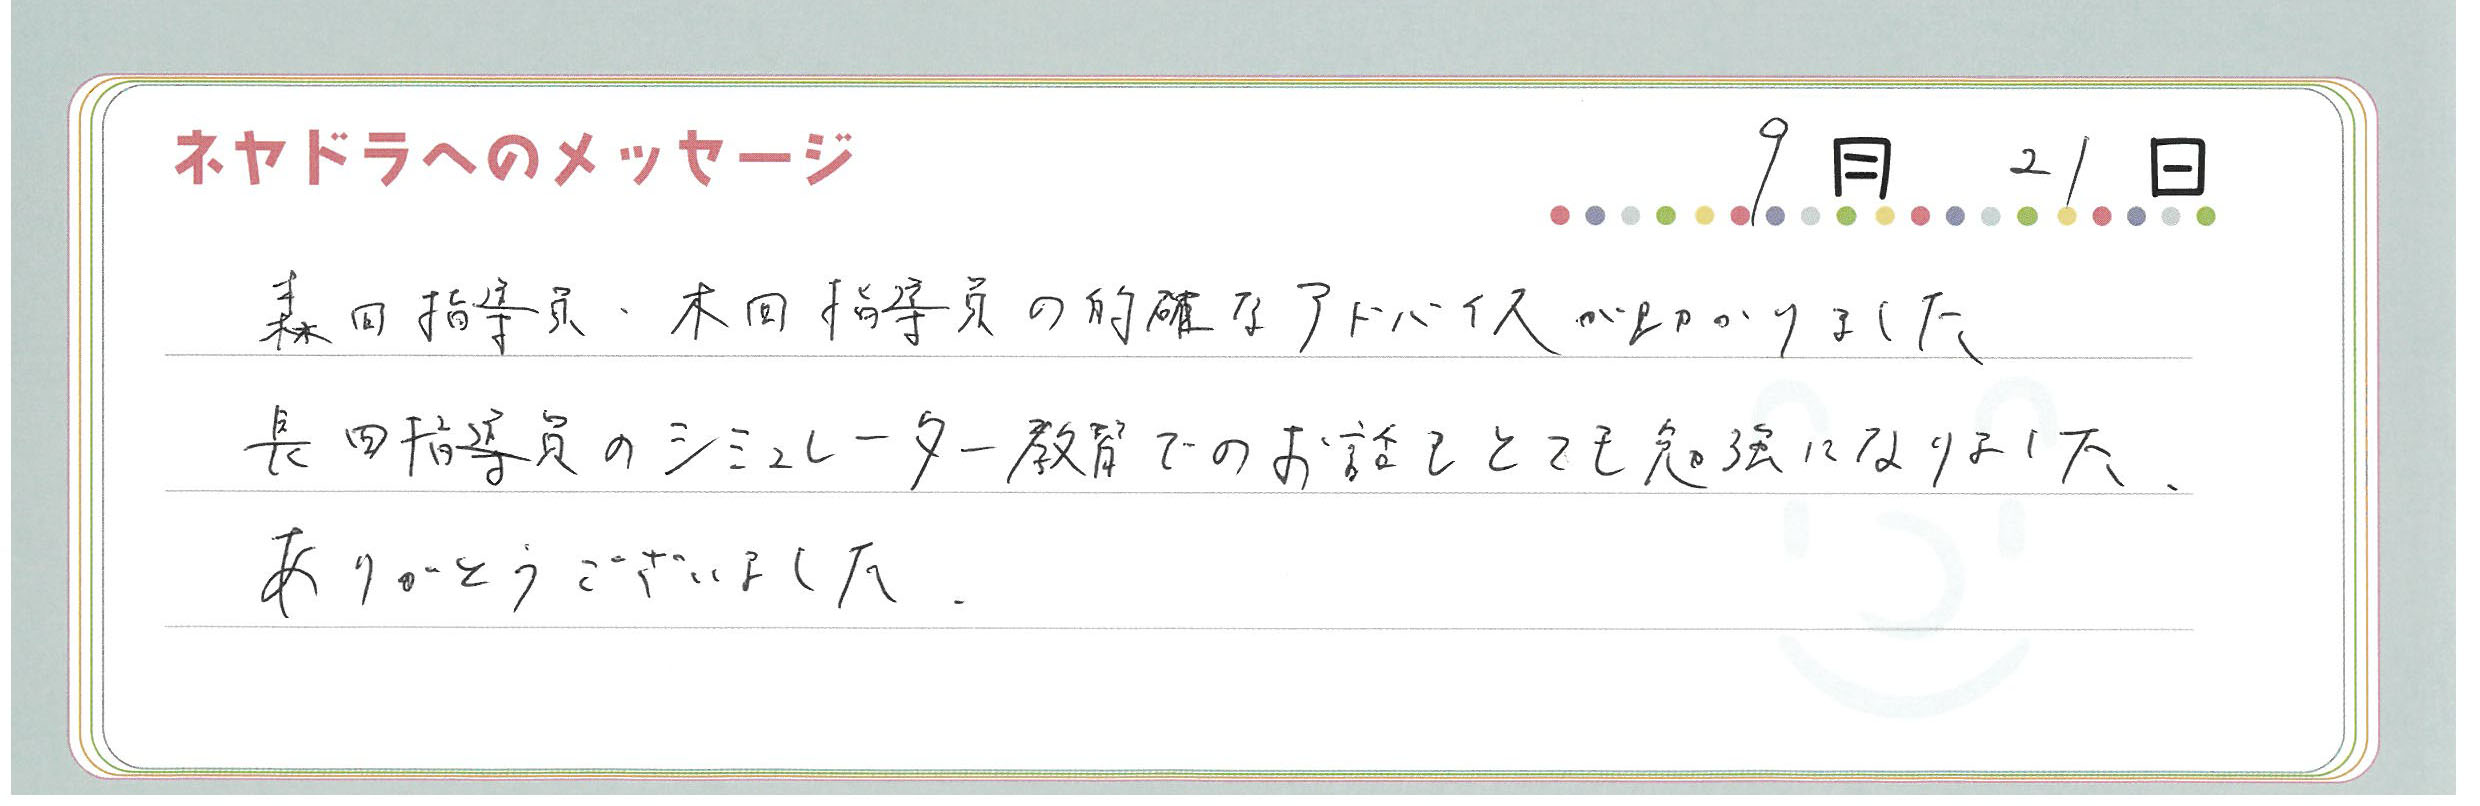 ネヤドラへのメッセージ
9月 21日
森田指導員・木田指導員の的確なアドバイスが助かりました
長田指導員のシミュレーター教習でのお話もとても勉強になりました、
ありがとうございました.